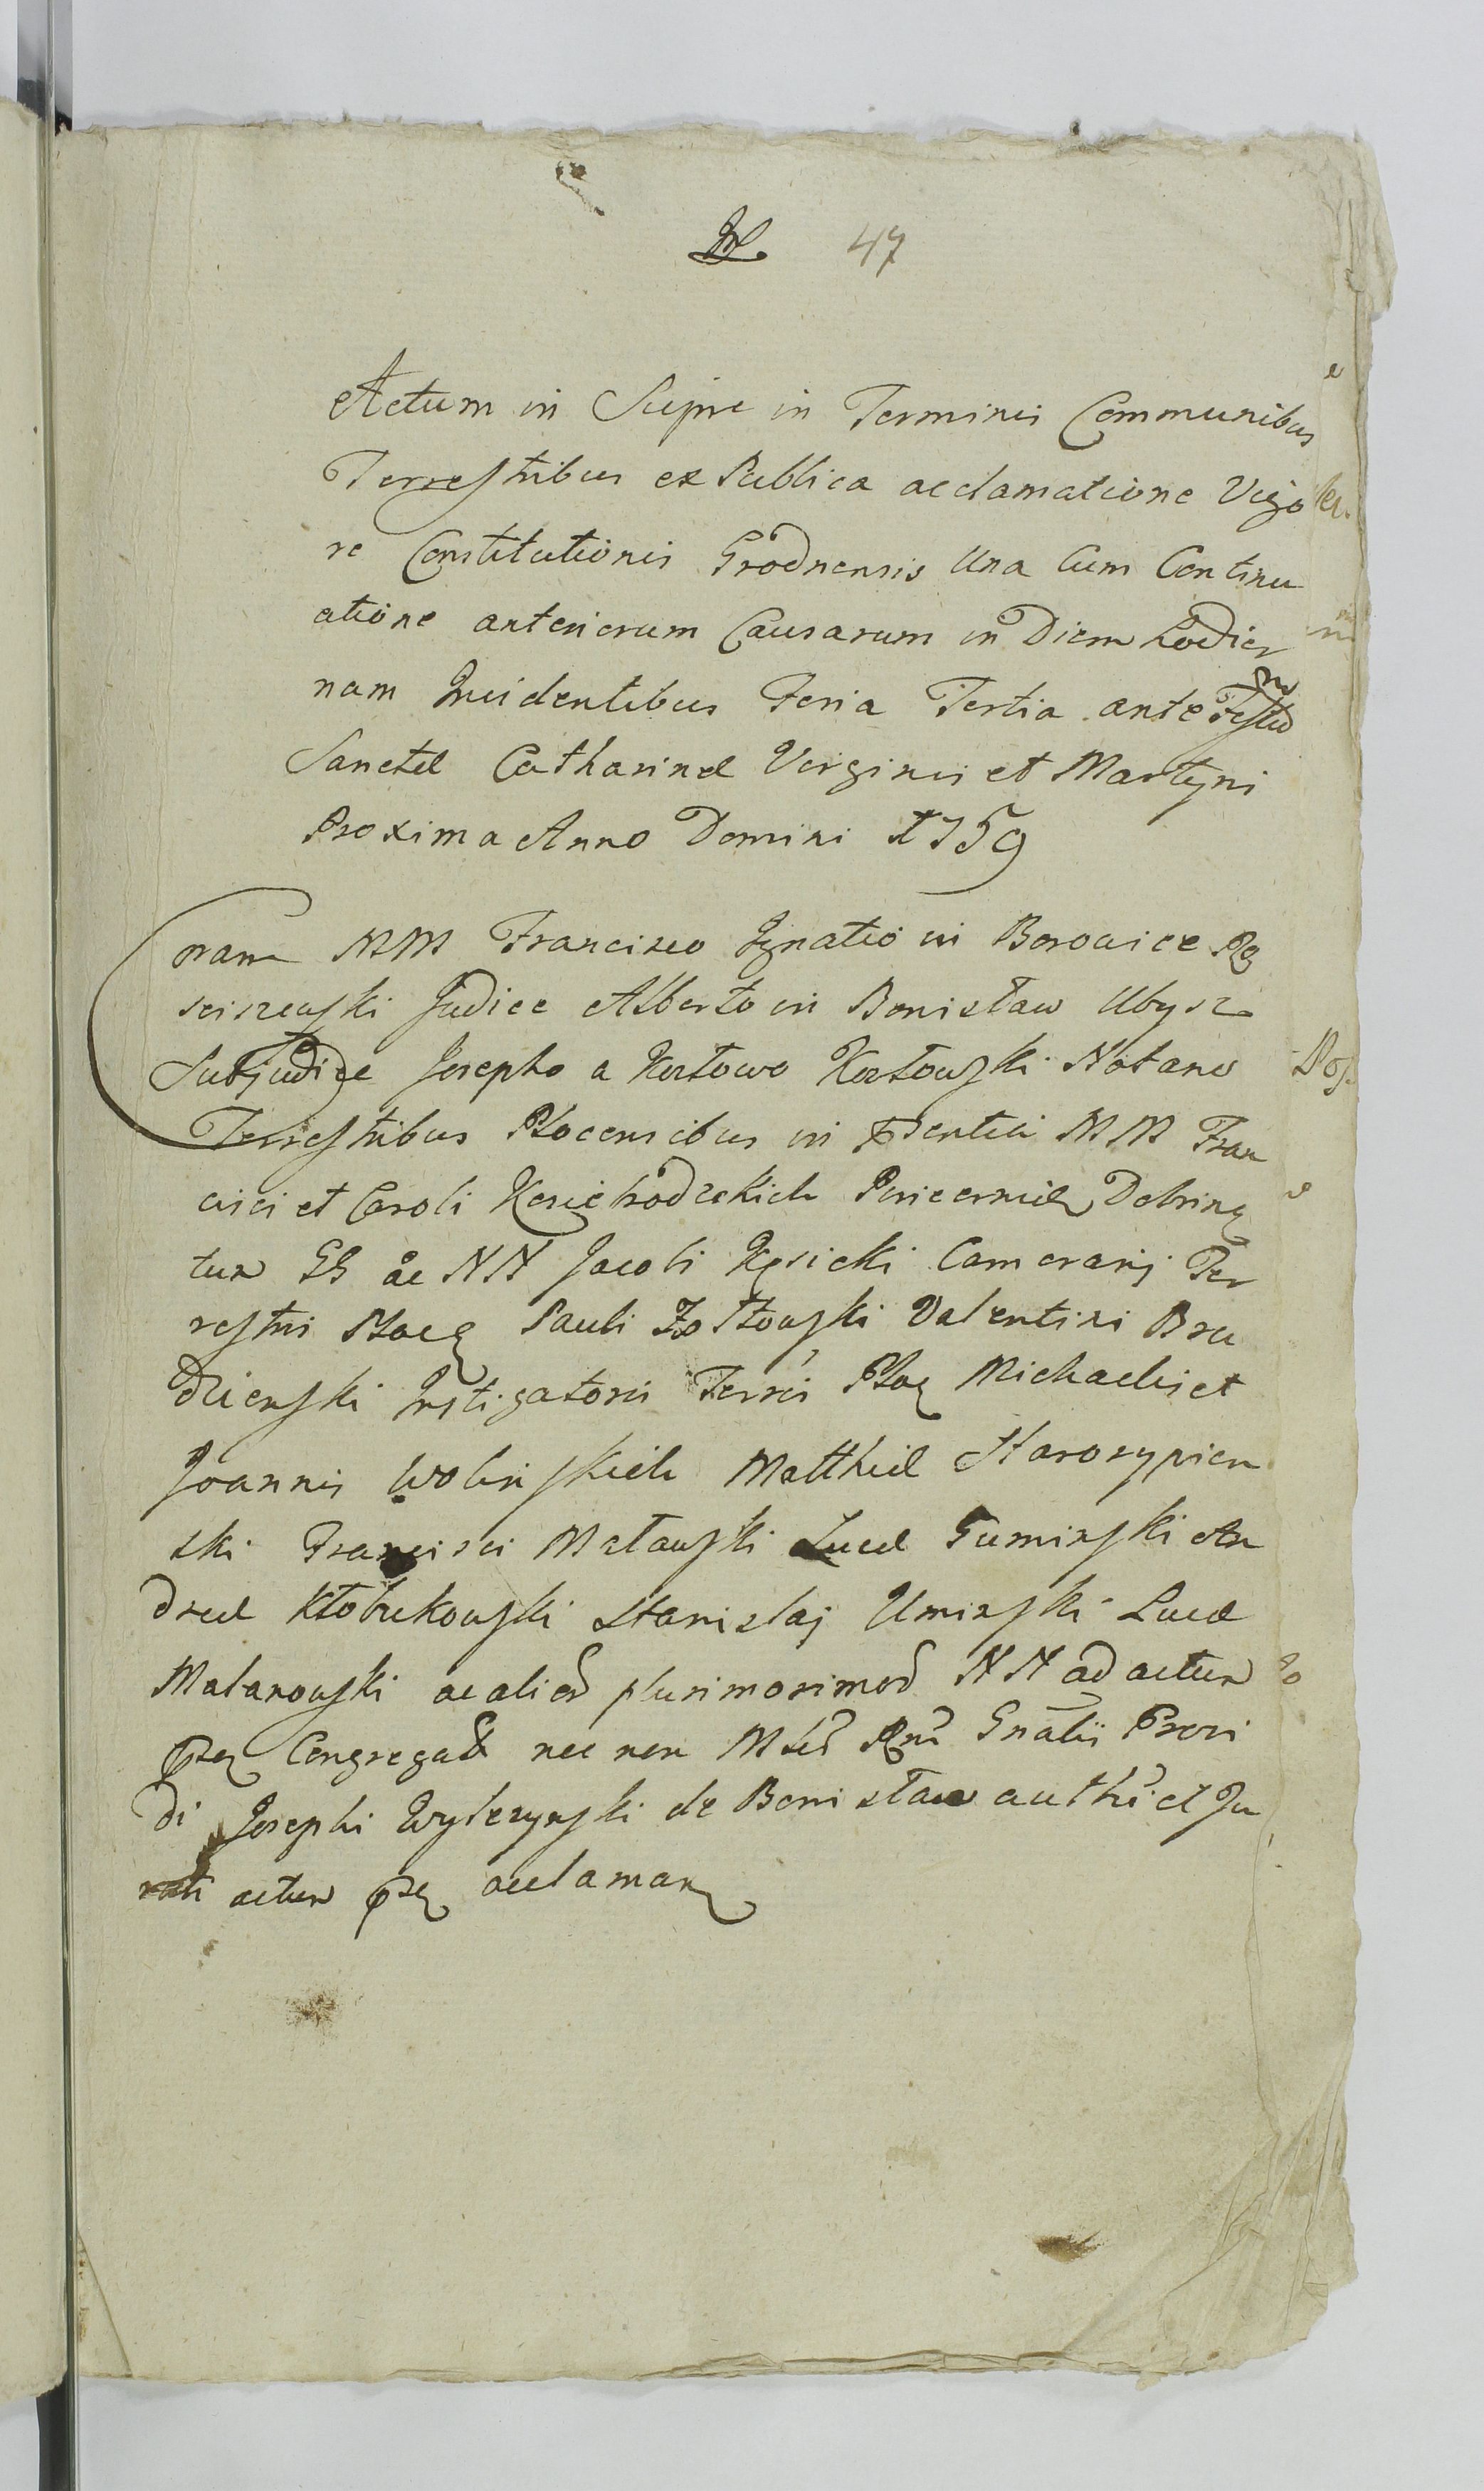 47
Actum in Sieprc in Terminis Communibus
Terrestribus ex Publica acclamatione Vigo
re Constitutionis Grodnensis Una Cum Continu
atione anteriorum Causarum in Diem hodier
nam Incidentibus Feria Tertia ante Festū
Sanctæ Catharinæ Virginis et Martyris
Proxima Anno Domini 1759
Coram MM Francisco Ignatio in Borowice Ro
sciszewski Judice Alberto in Bonisław Ubysz
Subjudice Josepho a Kozłowo Kozłowski Notario
Terrestribus Plocensibus in pſentia MM Fran
cisci et Caroli Xsiężhodzkich Pincernidæ Dobrinen
tum GG ac NN Jacobi Kęsicki Camerarij Ter
restris Płocen Pauli Żołtowski Valentini Bru
dzienski Instigatoris Terris Płocen Michaelis et
Joannis Wolinskich Matthiæ Starorypien
ski Francisci Małowski Lucæ Guminski An
dreæ Kłobukowski Stanislaj Uminski Lucæ
Malanowski ac alior plurimorumod NN ad actum
pſen Congregat nec non Gnālis Provi
di Josephi Wylezynski de Bonisław auth et Ju
rati actum pſen acclaman